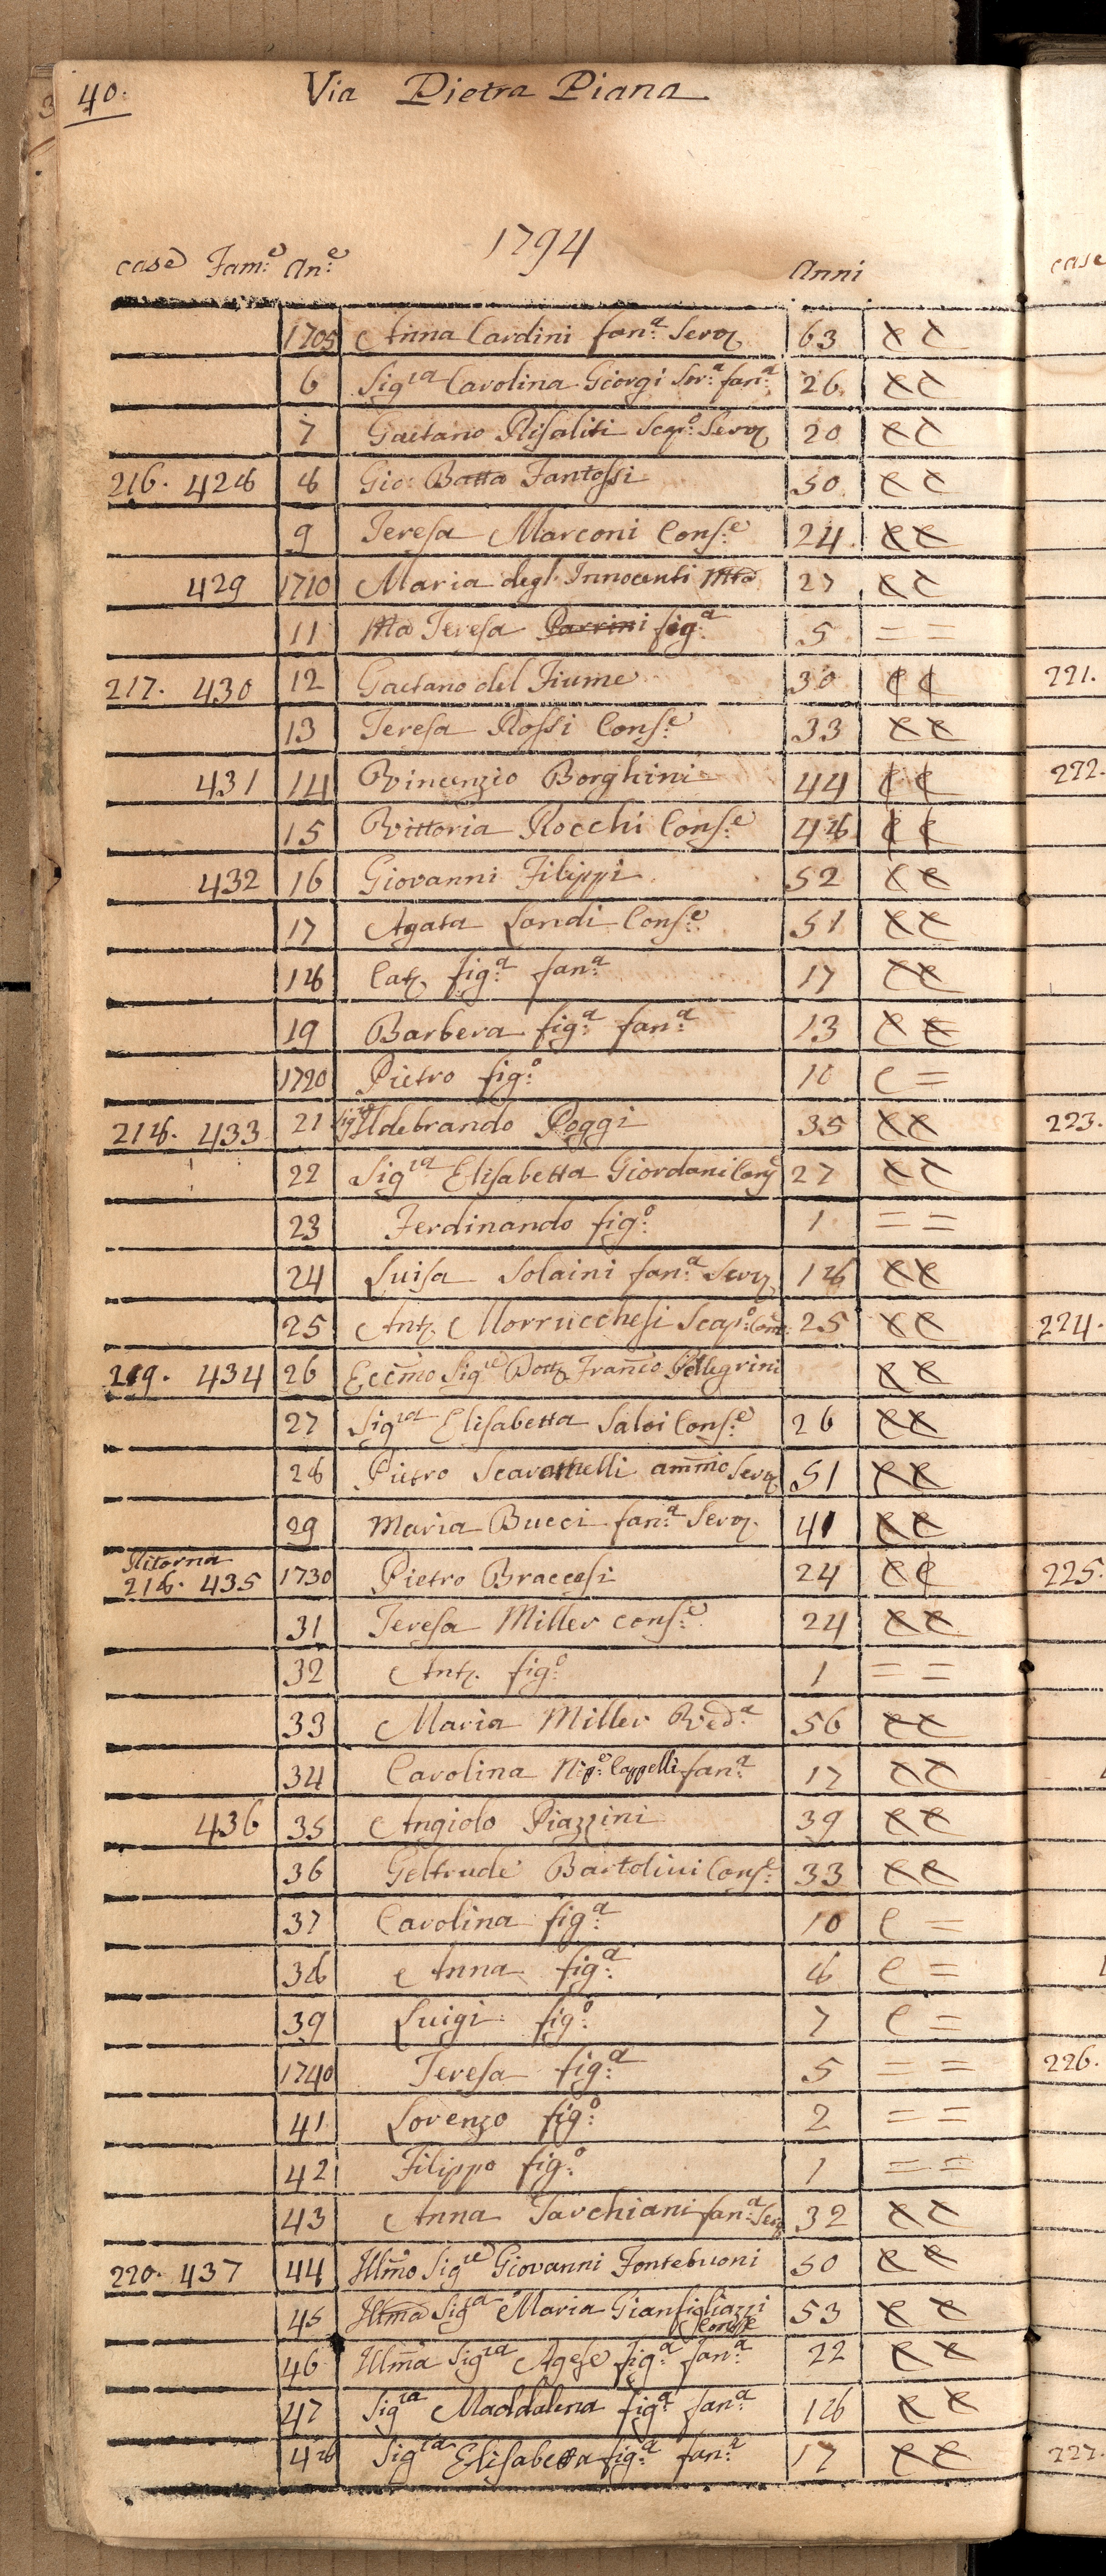 40.
Via Pietra Piana
1794
case Fam:e An:e Anni
1705 Anna Cardini fan:a Serv. 63 X C
6 Sig.ra Carolina Giorgi Sor:a fan:a 26 X C
7 Gaetano Risaliti Scap:o Serv. 20 X C
216. 428 8 Gio: Batta Fantossi 50 X C
9 Teresa Marconi Cons:e 24 X X
429 1710 Maria degl' Innocenti 27 X C
11 Ma Teresa Parrini fig:a 5 = =
217. 430 12 Gaetano del Fiume 30 ¢ ¢
13 Teresa Rossi Cons:e 33 X X
431 14 Vincenzio Borghini 44 ¢ ¢
15 Vittoria Rocchi Cons:e 48 ¢ ¢
432 16 Giovanni Filippi 52 X X
17 Agata Landi Cons:e 51 X X
18 Cat. fig:a fan:a 17 X X
19 Barbera fig:a fan:a 13 X X
1720 Pietro fig:o 10 C =
218. 433 21 Sig.re Ildebrando Poggi 35 X X
22 Sig.ra Elisabetta Giordani Cons 27 X C
23 Ferdinando fig:o 1 = =
24 Luisa Solaini fan:a Serv. 18 X X
25 Ant. Morrucchesi Scap:o 25 X X
219. 434 26 Eccmo Sig.re Dott. Franco Pellegrini X X
27 Sig.ra Elisabetta Salvi Cons:e 26 X X
28 Pietro Scaramelli ammo Serv. 51 X X
29 Maria Bucci fan:a Serv. 41 X X
Ritorna
218. 435 1730 Pietro Braccesi 24 X ¢
31 Teresa Miller cons:e 24 X X
32 Ant. fig:o 1 = =
33 Maria Miller Ved:a 56 X X
34 Carolina Nip:e Cappelli fan:a 17 X C
436 35 Angiolo Piazzini 39 X X
36 Geltrude Bartolini Cons:e 33 X X
37 Carolina fig:a 10 C =
38 Anna fig:a 8 C =
39 Luigi fig:o 7 C =
1740 Teresa fig:a 5 = =
41 Lorenzo fig:o 2 = =
42 Filippo fig:o 1 = =
43 Anna Tarchiani fan:a Serv 32 X C
220. 437 44 Illmo Sig.re Giovanni Fontebuoni 50 X X
45 Illma Sig.ra Maria Gianfigliazzi 53 X X
Conse
46 Illma Sig.ra Agese fig:a fan:a 22 X X
47 Sig.ra Maddalena fig:a fan:a 18 X X
48 Sig.ra Elisabetta fig:a fan:a 17 X X
case
221.
222.
223.
224.
225.
226.
227.